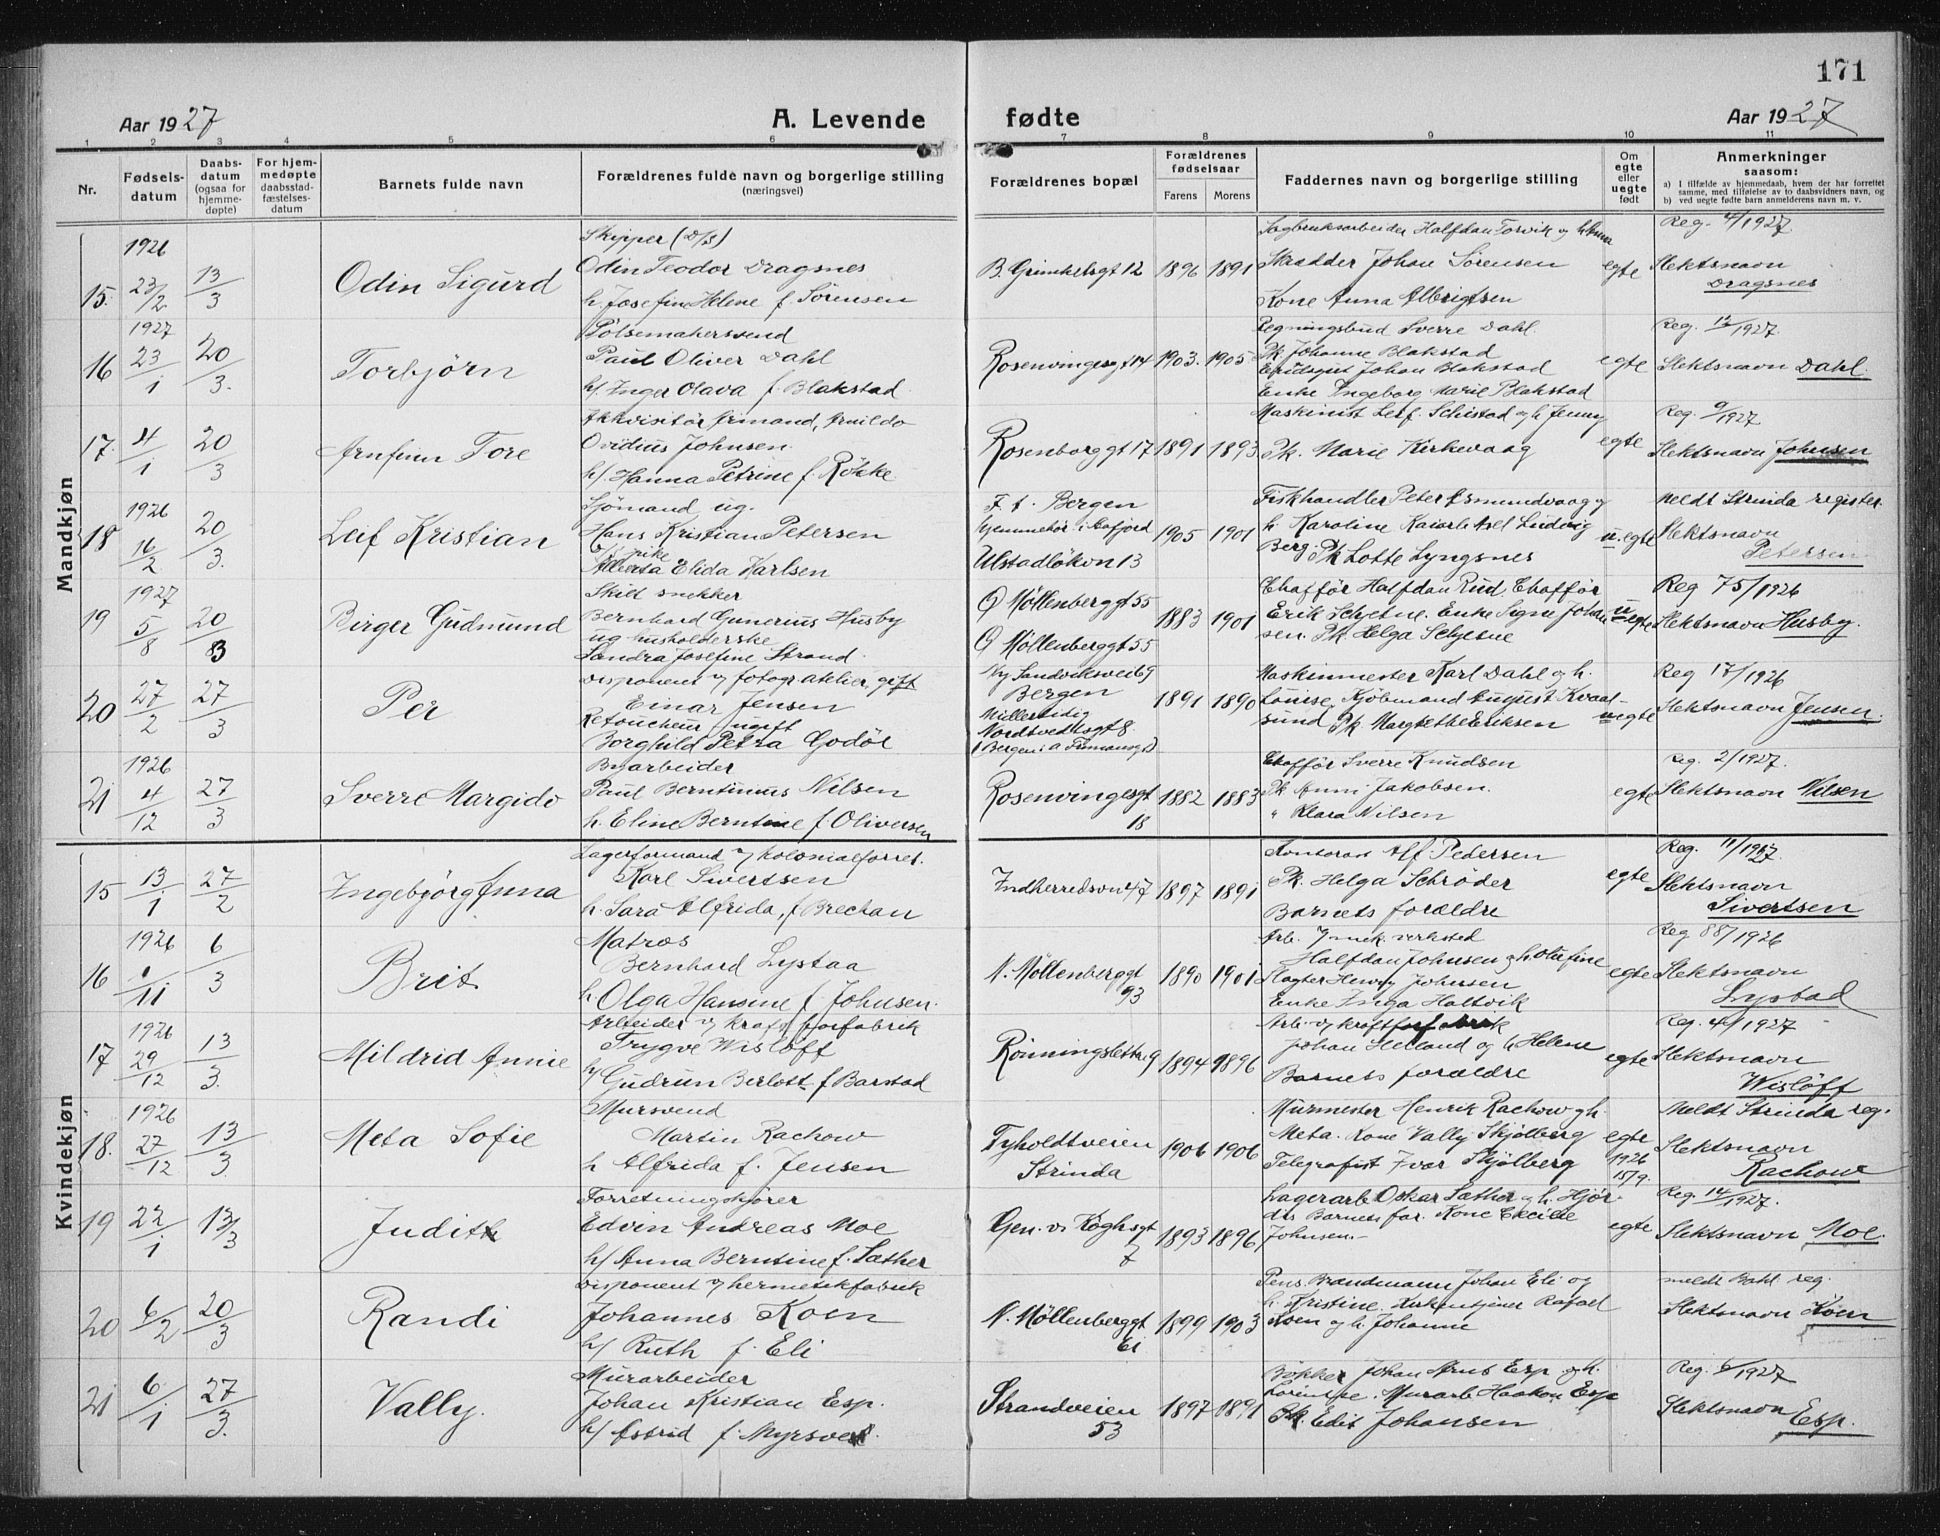 171
Aar 1927
A. Levende
fødte
Aar 1927
1 2 3 4 5 6 7 8 9 10 11
Nr.
Fødsels-
datum
Daabs-
datum
(ogsaa for
hjemme-
døpte)
For hjem-
medøpte
daabsstad-
fæstelses-
datum
Barnets fulde navn
Forældrenes fulde navn og borgerlige stilling
(næringsvei)
Forældrenes bopæl
Forældrenes
fødselsaar
Farens
Morens
Faddernes navn og borgerlige stilling
Om
egte
eller
uegte
født
Anmerkninger
saasom:
a) I tilfælde av hjemmedaab, hvem der har forrettet
samme, med tilføielse av to daabsvidners navn, og
b) ved uegte fødte barn anmelderens navn m. v.
Mandkjøn
15. 1926 23/2 13/3
Odin Sigurd
Skipper (D/S)
Odin Teodor Dragsnes
h. Josefine Helene f. Sørensen
B. Grimkelsgt 12 1896 1891
Sagbruksarbeider Halfdan Torvik og h.
Skrædder Johan Sørensen
Kone Anna Albrigtsen
egte
Reg. 4/1927.
Slektsnavn
Dragsnes
16 1927 23/1 20/3.
Torbjörn
Pölsemakersvend
Paul Oliver Dahl
h/ Inger Olava f. Blakstad
Rosenvingesgt 14 1903. 1905
Regningsbud Sverre Dahl.
Pk. Johanne Blakstad
Johan Blakstad
Enke Ingeborg Marie Blakstad
egte
Reg. 12/1927.
Slektsnavn Dahl.
17. 4/1 20/3
Arnfinn Tore
Akkvisitör Armand, Arnildo
Ovidius Johnsen
h/. Hanna Petrine f. Rökke
Rosenborggt 17 1891 1893
Maskinist Leif Schistad og h. Jenny
Pk. Marie Kirkevaag
egte
Reg. 9/1927
Slektsnavn Johnsen
18 1926 16/2 20/3.
Leif Kristian
Sjömand, ug.
Hans Kristian Petersen
pike
Alberta Elida Karlsen
F. t. Bergen
hjemmehör. i Aafjord
Ulstadlökon 13
1905 1901
Fiskhandler Peter Esmundvaag og
h. Karoline Kaiarb. Axel Ludvig
Berg. Pk Lotte Lyngsnes
u.egte
meldt Strinda register.
Slektsnavn
Petersen
19 1927 5/8 20/3
Birger Gudmund
Skilt snekker
Bernhard Gunerius Husby
ug husholderske
Sandra Josefine Strand.
Ø Möllenberggt 55
Ø Möllenberggt 55
1883 1901
Chafför Halfdan Rud. Chafför
Erik Schjetne. Enke Signe Johan
sen. Pk. Helga Schjetne
uegte
Reg 75/1926
Slektsnavn Husby.
20 27/2 27/3
Per
Disponent v/ fotogr. atelier, gift
Einar Jensen
Retoucheur ugift
Borghild Petra Godöe
Ny Sandviksvei 69
Bergen
Midlertidig
Nordtvedtsgt 8.
1891 1890
Maskinmester Karl Dahl og h.
Louise. Kjöbmand August Kvaal-
sund Pk. Margrethe Eriksen
uegte
Reg 17/1926
Slektsnavn Jensen.
21 1926 4/12 27/3
Sverre Margido
Byarbeider
Paul Berntinus Nilsen
h. Eline Berntine f. Oliversen
Rosenvingesgt
18
1882 1883
Chafför Sverre Knudsen
Pk. Anni Jakobsen.
" Klara Nilsen
egte
Reg. 2/1927.
Slektsnavn Nilsen
Kvindekjøn
15 13/1 27/2
Ingebjörg Anna
Lagerformand v/ kolonialforret.
Karl Sivertsen
h. Sara Alfrida, f. Brechan
Indherredsvn 47 1897 1891
Kontorist Alf. Pedersen
Pk. Helga Schröder
Barnets forældre
egte
Reg. 11/1927
Slektsnavn
Sivertsen
16 1926 1/11 6/3
Brit
Matros
Bernhard Lystaa
h Olga Hansine f. Johnsen.
N. Möllenberggt
93
1890 1901
Arb. v/ mek. verksted
Halfdan Johnsen og h. Olufine
Slagter Henry Johnsen
Enke Inga Holtvik
egte
Reg 88/1926
Slektsnavn
Lystad
17 1926 29/12 13/3.
Mildrid Annie
Arbeider v/ kraftforfabrik
Trygve Wislöff
h/ Gudrun Berlott f. Barstad
Rönningsletta 9 1894 1896
Arb. v/ kraftforfabrik
Johan Helland og h. Helene
Barnets forældre
egte
Reg. 4/1927
Slektsnavn
Wislöff
18. 1926 27/12 13/3
Meta Sofie
Mursvend
Martin Rachow
h Alfrida f. Jensen
Tyholdtveien
Strinda
1906 1906
Murmester Henrik Rachow og h.
Meta. Kone Vally Skjölberg
Telegrafist Ivar Skjölberg
egte
1926
15/9.
Meldt Strinda reg.
Slektsnavn
Rachow
19 22/1 13/3
Judith
Forretningskjører
Edvin Andreas Moe
h/ Anna Berntine f. Sæther
Gen. v. Köghsgt
7
1893 1896
Lagerarb. Oskar Sæther og h. Hjör-
dis Barnets far. Kone Cecilie
Johnsen.-
egte
Reg. 14/1927.
Slektsnavn Moe.
20 6/2 20/3
Randi
Disponent v/ hermetikfabrik
Johannes Koen
h/ Ruth f. Eli
N. Möllenberggt
61
1899 1903
Pens. Brandmann Johan Eli og
h. Kristine. Kirketjener Rafael
Koen og h. Johanne
meldt Bakl. reg.
Slektsnavn Koen
21 6/1 27/3.
Vally.
Murarbeider
Johan Kristian Esp.
h/ Astrid f. Myrsve
Strandveien
53
1897 1891
Bökker Johan Arnt Esp og h.
Lorentse. Murarb. Haakon Esp
Pk. Edit Johansen
Reg. 6/1927
Slektsnavn Esp.